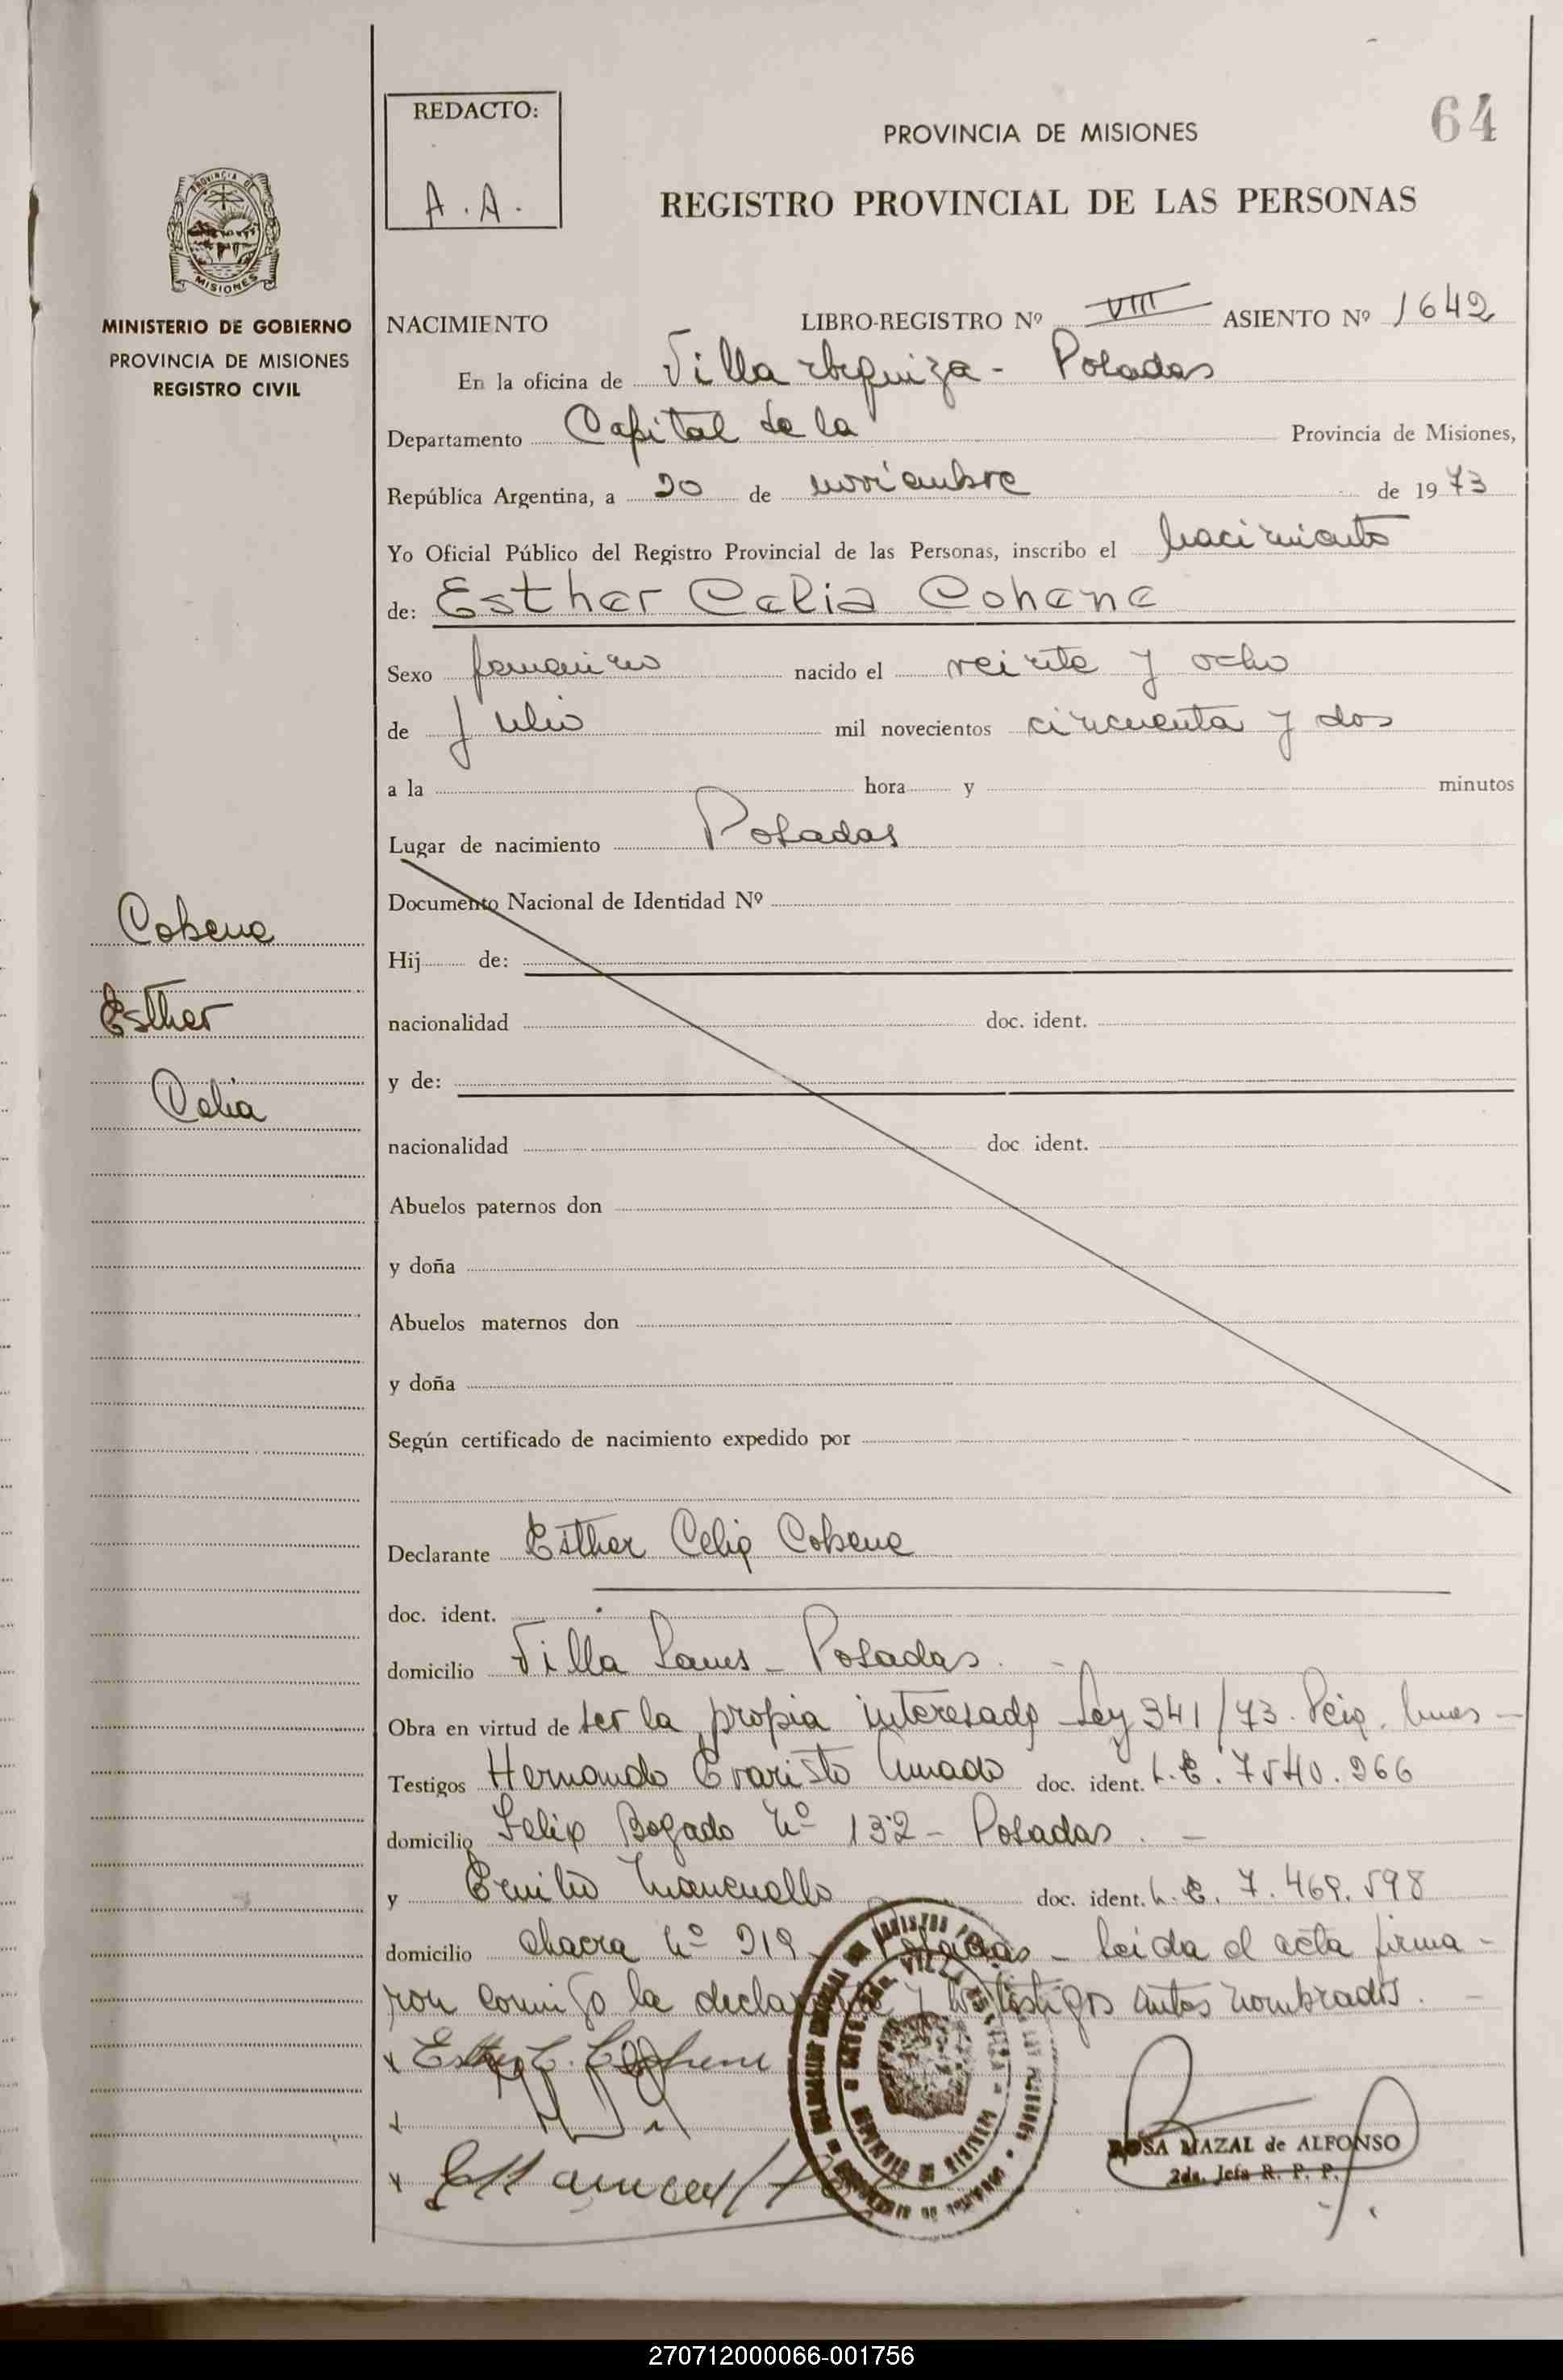 REDACTO:
A.A.
64
PROVINCIA DE MISIONES
REGISTRO PROVINCIAL DE LAS PERSONAS
PROVINCIA DE
MISIONES
MINISTERIO DE GOBIERNO
PROVINCIA DE MISIONES
REGISTRO CIVIL
NACIMIENTO LIBRO-REGISTRO Nº VIII ASIENTO Nº 1642
En la oficina de Villa Urquiza - Posadas
Departamento Capital de la Provincia de Misiones,
República Argentina, a 20 de noviembre de 1973
Yo Oficial Público del Registro Provincial de las Personas, inscribo el nacimiento
de: Esther Celia Cohene
Sexo femenino nacido el veinte y ocho
de Julio mil novecientos cincuenta y dos
a la hora y minutos
Lugar de nacimiento Posadas
Documento Nacional de Identidad Nº
Cohene
Hij de:
Esther
nacionalidad doc. ident.
Celia
y de:
nacionalidad doc ident.
Abuelos paternos don
y doña
Abuelos maternos don
y doña
Según certificado de nacimiento expedido por
Declarante Esther Celia Cohene
doc. ident.
domicilio Villa Lanus - Posadas. -
Obra en virtud de ser la propia interesada Ley 341/73.
Testigos Hernando Evaristo Amado doc. ident. L.E. 7540.266
domicilio Felix Bogado Nº 132 - Posadas. -
y Emilio Mancuello doc. ident. L.E. 7.469.598
domicilio chacra Nº 219 - Posadas - leida el acta firma-
ron conmigo la declarante y los testigos antes nombrados. -
Esther C. Cohene
ROSA MAZAL de ALFONSO
2da. Jefa R. P. P.
270712000066-001756